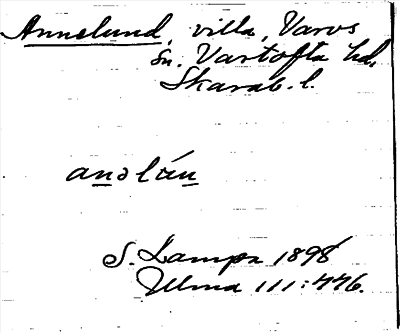 Annelund, villa, Varvs
sn. Vartofta hd.
Skarab. l.
anəlún
S. Lampa 1898
Ulma 111:446.